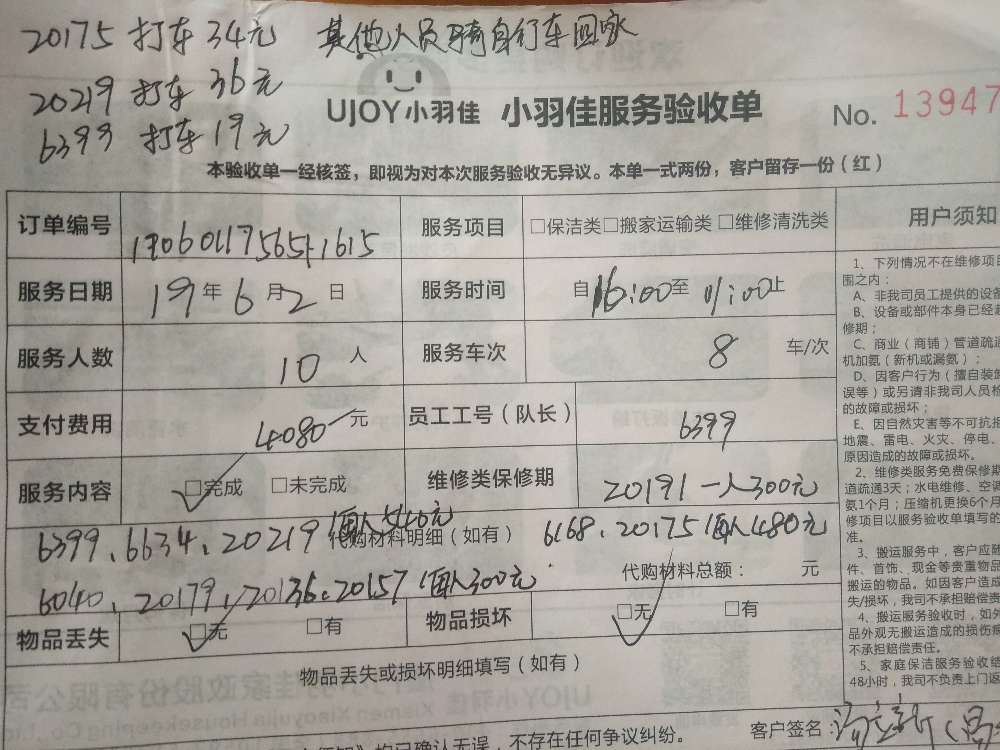 20175 打车 34元 其他人员骑自行车回家
20219 打车 36元
6399 打车 19元
UJOY小羽佳 小羽佳服务验收单 No. 13947
本验收单一经核签，即视为对本次服务验收无异议。本单一式两份，客户留存一份（红）
订单编号 服务项目 □保洁类□搬家运输类 □维修清洗类
服务日期 19年6月2日 服务时间 自16:00至 止
服务人数 10 人 服务车次 8 车/次
支付费用 4080 元 员工工号（队长） 6399
服务内容 □完成 □未完成 维修类保修期 20191 一人300元
6399、6634、20219 每人540元 代购材料明细（如有） 6168、20175 每人480元
6040、20179、20136、20157 每人300元 代购材料总额： 元
物品丢失 □无 □有 物品损坏 □无 □有
物品丢失或损坏明细填写（如有）
均已确认无误，不存在任何争议纠纷。 客户签名：
用户须知
1、下列情况不在维修项
围之内：
A、非我司员工提供的设备
B、设备或部件本身已经
修期；
C、商业（商铺）管道疏通
机加氨（新机或漏氨）；
D、因客户行为（擅自装
误等）或另请非我司人员
的故障或损坏；
E、因自然灾害等不可抗
地震、雷电、火灾、停电、
原因造成的故障或损坏。
2、维修类服务免费保修期
道疏通3天；水电维修、空调
氨1个月；压缩机更换6个月
修项目以服务验收单填写的
准。
3、搬运服务中，客户应
件、首饰、现金等贵重物品
搬运的物品。如因客户造成
失/损坏，我司不承担赔偿责
4、搬运服务验收时，如
品外观无搬运造成的损伤
不承担赔偿责任。
5、家庭保洁服务验收
48小时，我司不负责上门返